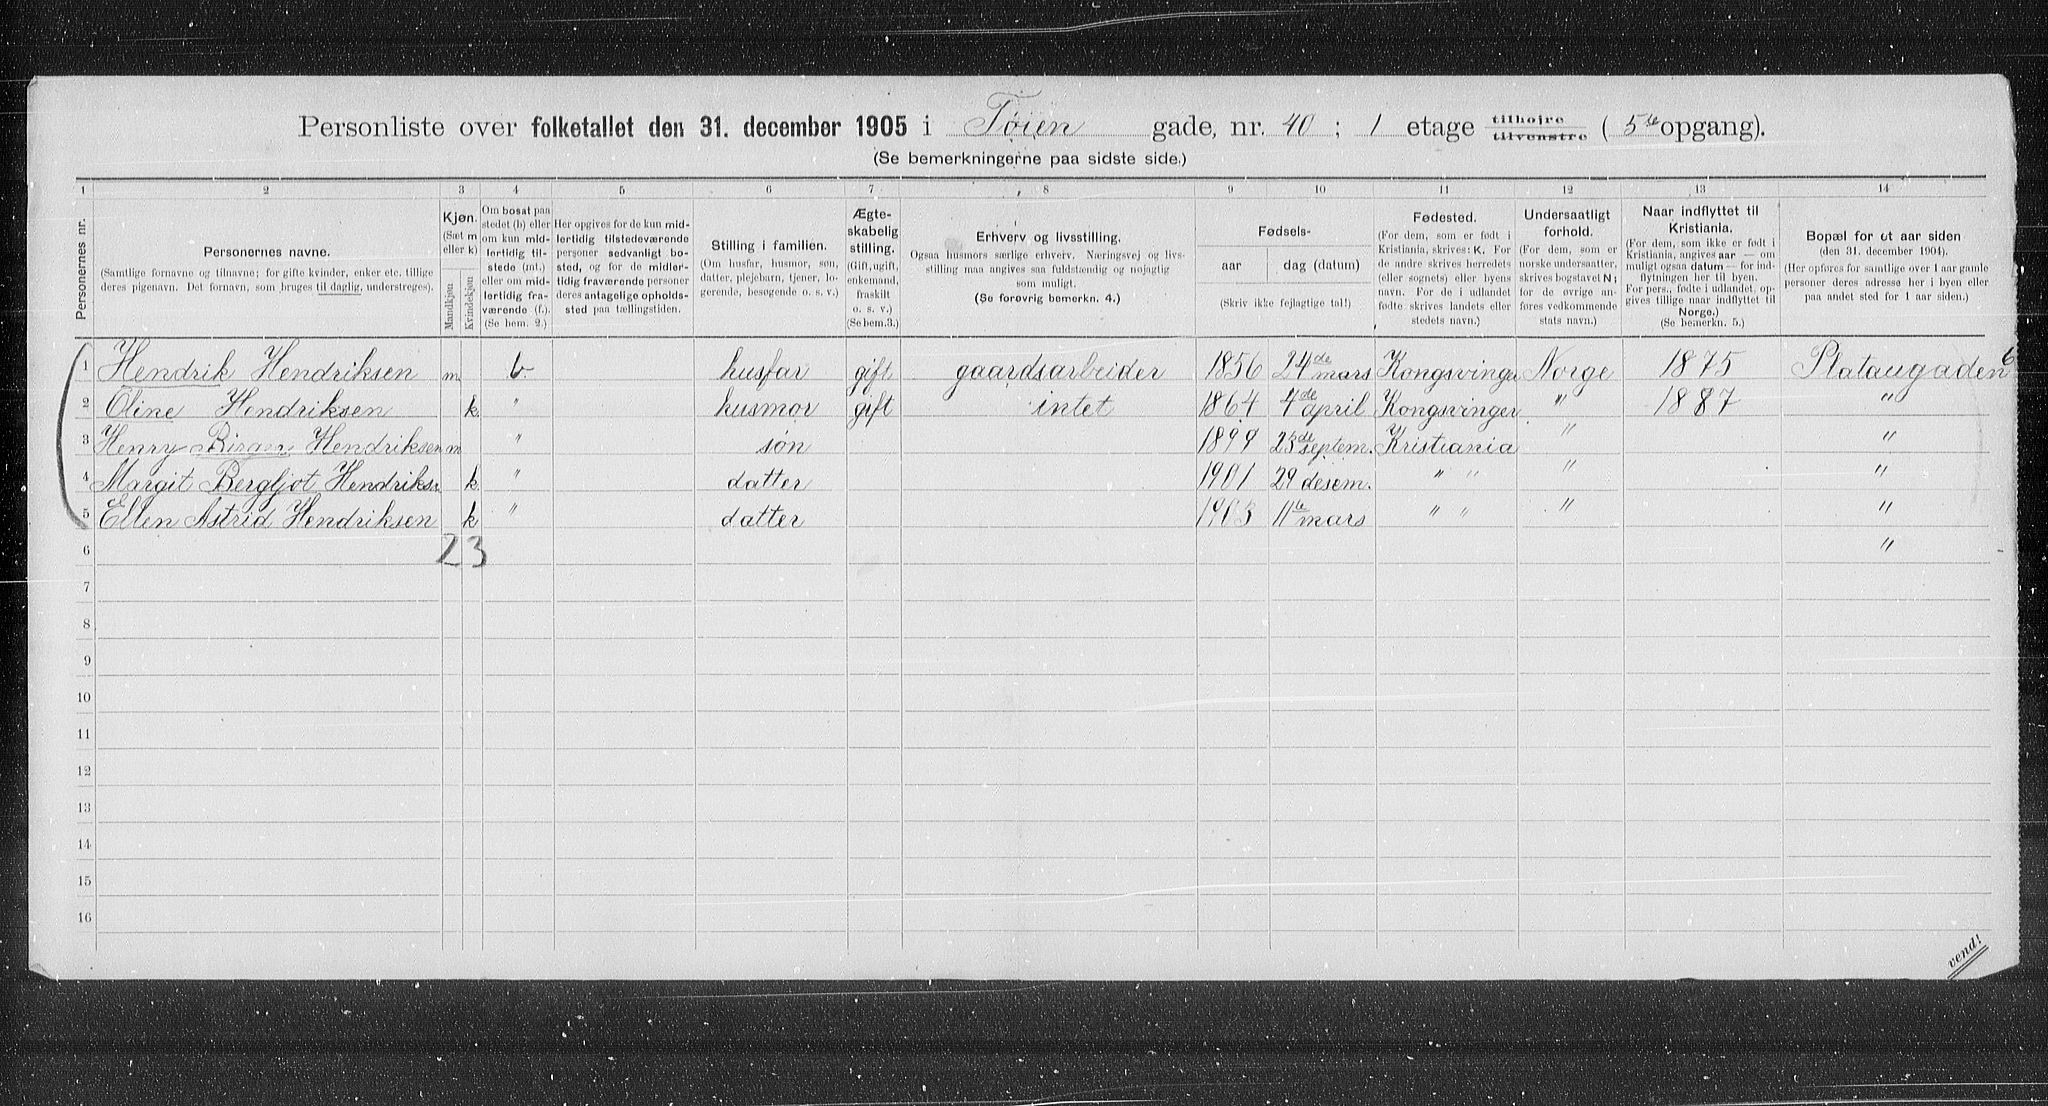 Personliste over folketallet den 31. december 1905 i Tøien gade, nr. 40 ; 1 etage tilhøjre tilvenstre ( 5te opgang).
(Se bemerkningerne paa sidste side.)
1 2 3 4 5 6 7 8 9 10 11 12 13 14
Personernes nr.
Personernes navne.
(Samtlige fornavne og tilnavne; for gifte kvinder, enker etc. tillige
deres pigenavn. Det fornavn, som bruges til daglig, understreges).
Kjøn.
(Sæt m
eller k)
Mandkjøn
Kvindekjøn
Om bosat paa
stedet (b) eller
om kun mid-
lertidig til-
stede (mt.)
eller om mid-
lertidig fra-
værende (f.).
(Se bem. 2.)
Her opgives for de kun mid-
lertidig tilstedeværende
personer sedvanlig bo-
sted, og for de midler-
tidig fraværende personer
deres antagelige opholds-
sted paa tællingstiden.
Stilling i familien.
(Om husfar, husmor, søn,
datter, plejebarn, tjener, lo-
gerende, besøgende o. s. v.)
Ægte-
skabelig
stilling.
(Gift, ugift,
enkemand,
fraskilt
o. s. v.)
(Se bem.3.)
Erhverv og livsstilling.
Ogsaa husmors særlige erhverv. Næringsvej og livs-
stilling maa angives saa fuldstændig og nøjagtig
som muligt.
(Se forøvrig bemerkn. 4.)
Fødsels-
aar
dag (datum)
(Skriv ikke fejlagtige tal!)
Fødested.
(For dem, som er født i
Kristiania, skrives: K. For
de andre skrives herredets
(eller sognets) eller byens
navn. For de i udlandet
fødte skrives landets eller
stedets navn.)
Undersaatligt
forhold.
(For dem, som er
norske undersaatter,
skrives bogstavet N;
for de øvrige an-
føres vedkommende
stats navn.)
Naar indflyttet til
Kristiania.
(For dem, som ikke er født i
Kristiania, angives aar — om
muligt ogsaa datum — for ind-
flytningen her til byen.
For pers., fødte i udlandet, op-
gives tillige naar indflyttet til
Norge.)
(Se bemerkn. 5.)
Bopæl for et aar siden
(den 31. december 1904).
(Her opføres for samtlige over 1 aar gamle
personer deres adresse her i byen eller
paa andet sted for 1 aar siden.)
1 Hendrik Hendriksen m b. husfar gift gaardsarbeider 1856 24de mars Kongsvinger Norge 1875 Plataugaden 6
2 Oline Hendriksen k " husmor gift intet 1864 4de april Kongsvinger " 1887 "
3 Henry Birger Hendriksen m " søn 1899 25de septem. Kristiania " "
4 Margit Bergljot Hendriksn k " datter 1901 29 desem. " " " "
5 Ellen Astrid Hendriksen k " datter 1903 11te mars " " " "
6 2 3 "
7
8
9
10
11
12
13
14
15
16
vend!